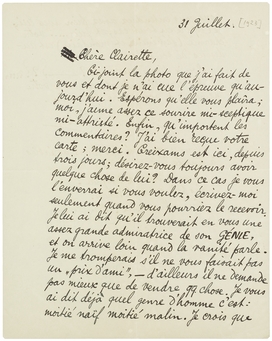 31 Juillet.
Chère Clairette,
Ci joint la photo que j'ai fait de
vous et dont je n'ai eue l'épreuve qu'au-
jourd'hui. Espérons qu'elle vous plaira;
moi, j'aime assez ce sourire mi-sceptique
mi-attristé. Enfin, qu'importent les
commentaires? J'ai bien reçue votre
carte; merci. Creixams est ici, depuis
trois jours; désirez-vous toujours avoir
quelque chose de lui? Dans ce cas je vous
l'enverrai si vous voulez, écrivez-moi
seulement quand vous pourriez le recevoir.
Je lui ai dit qu'il trouverait en vous une
assez grande admiratrice de son GÉNIE,
et on arrive loin quand la vanité parle.
Je me tromperais s'il ne vous faisait pas
un "prix d'ami", — d'ailleurs il ne demande
pas mieux que de vendre qq chose. Je vous
ai dit déjà quel genre d'homme c'est:
moitié naïf moitié malin. Je crois que